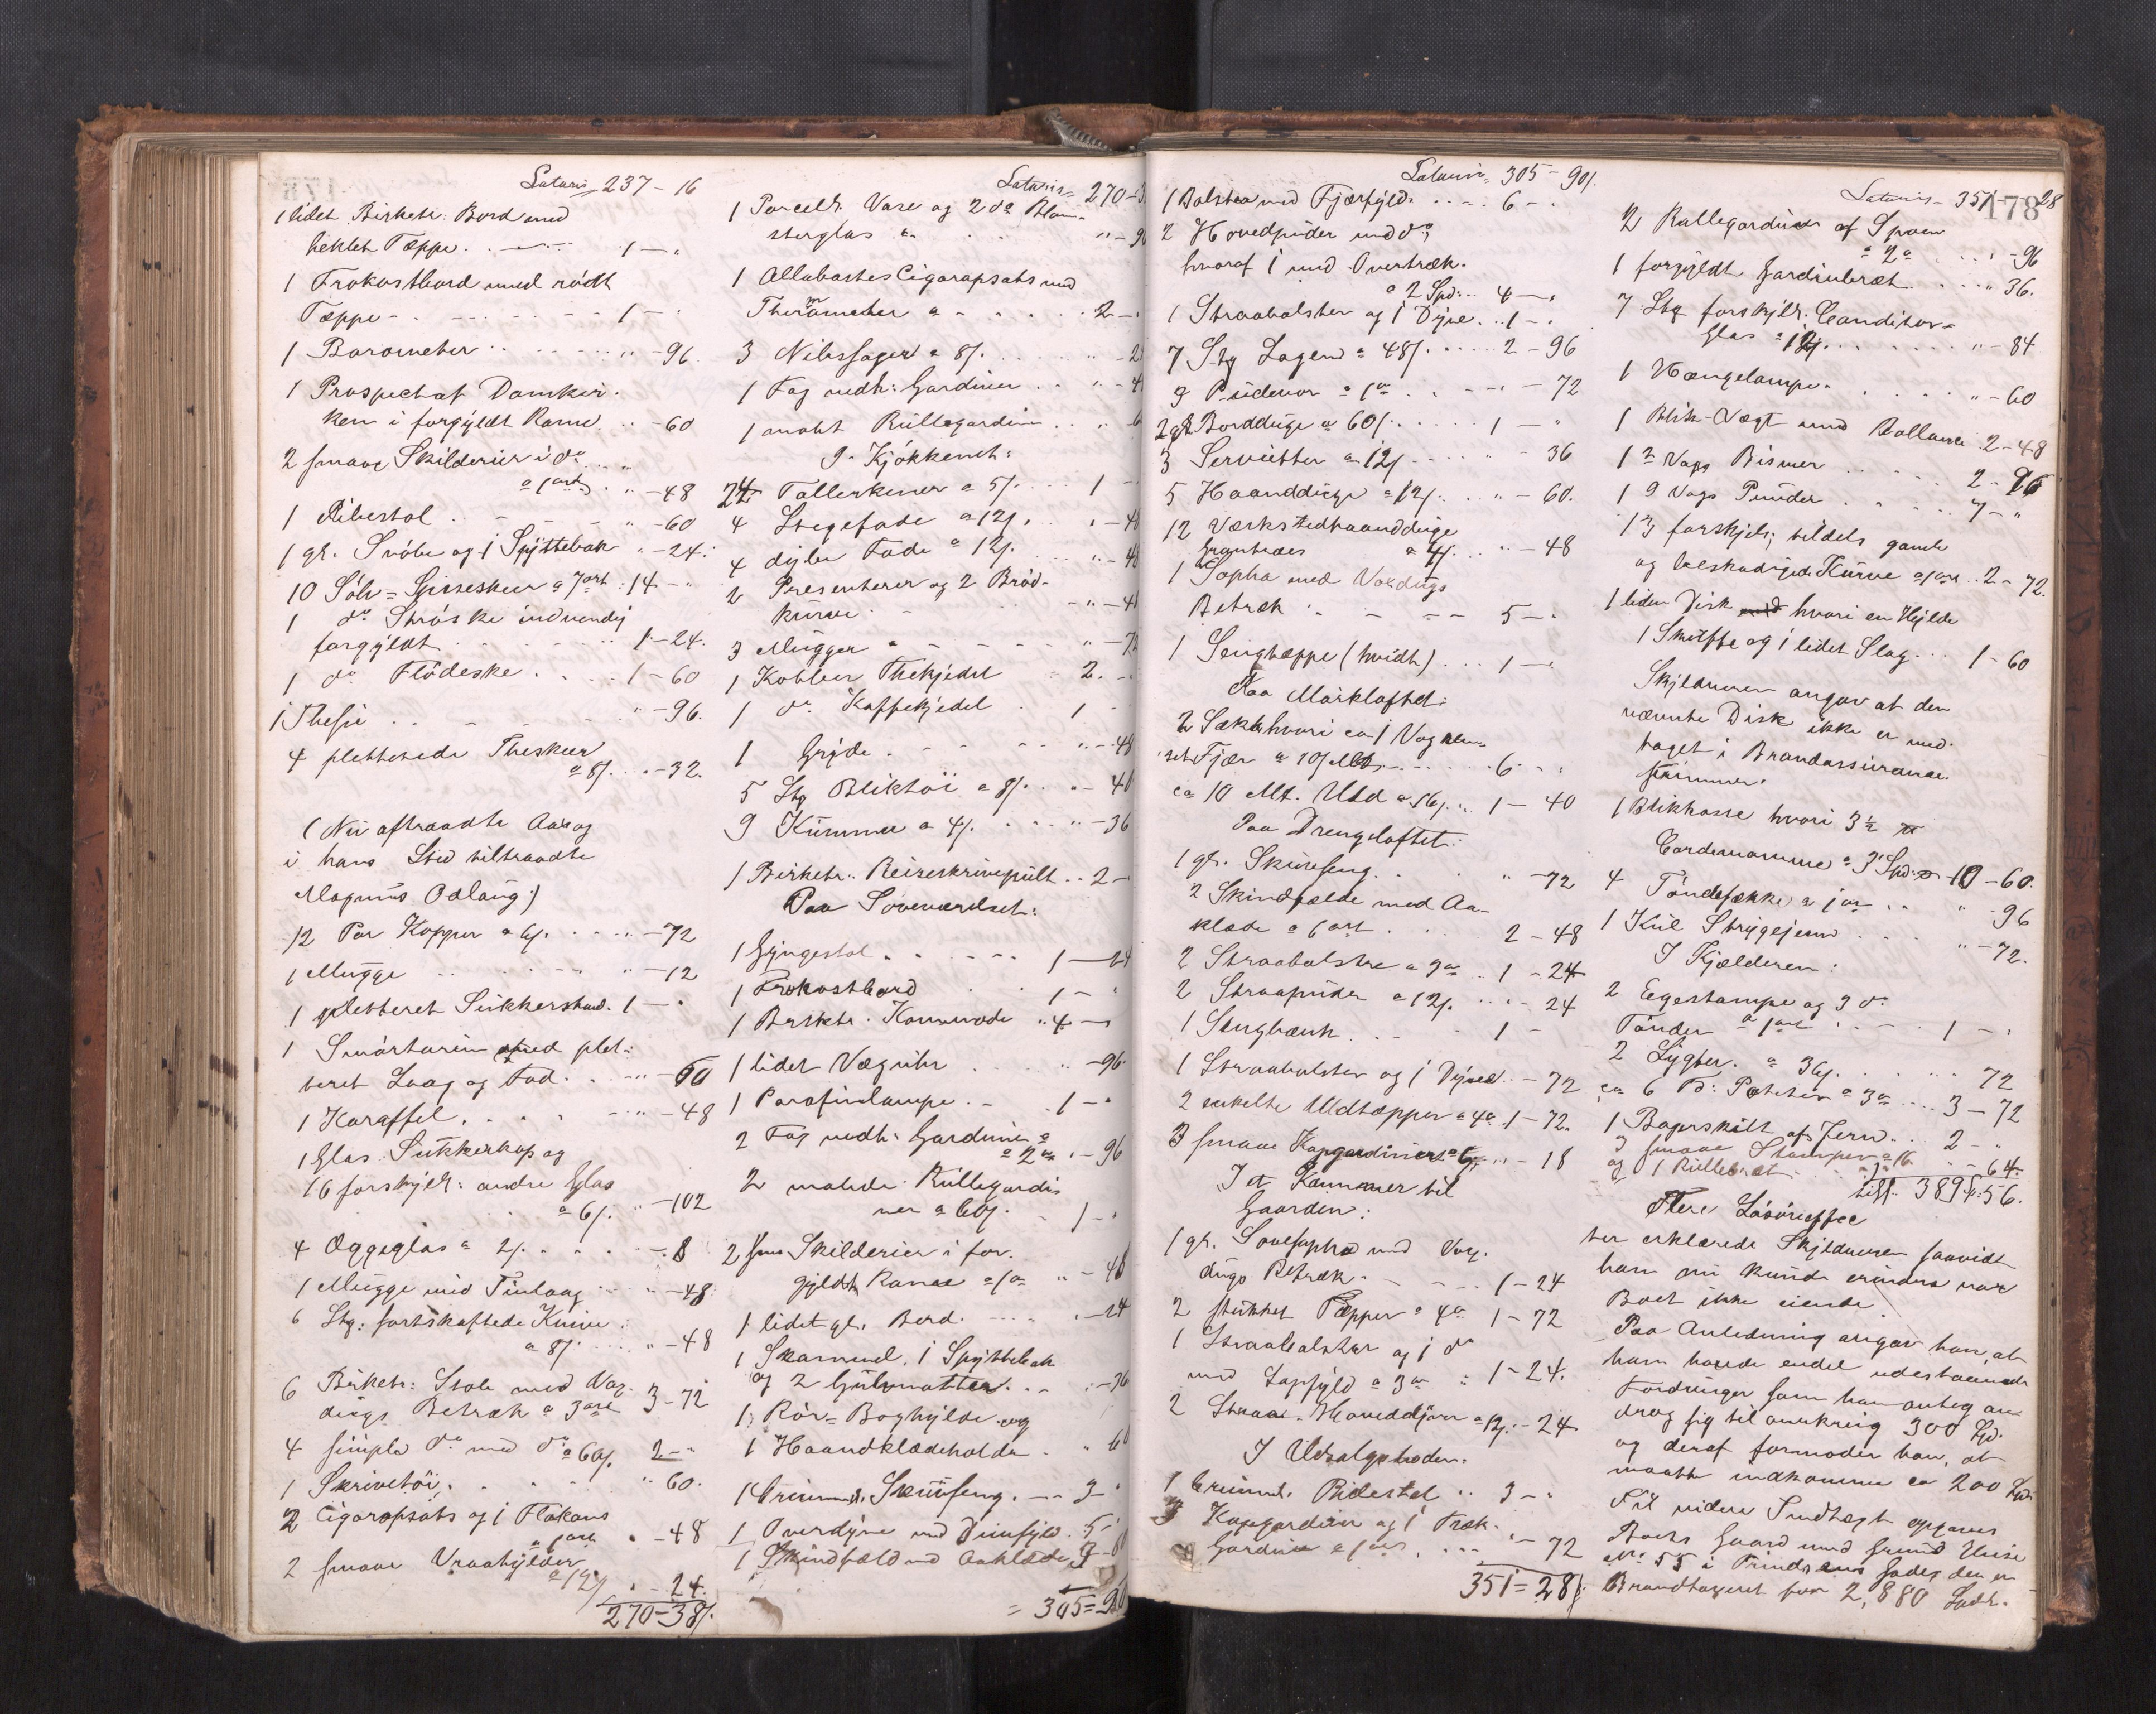 Lateris 237 - 16
1 lidet Birketr: Bord med
heklet Tæppe . . 1 - "
1 Frokostbord med rödt
Tæppe - 1 - "
1 Barometer . . " - 96.
1 Prospect af Domkir-
ken i forgyldt Rame " - 60
2 smaae Skilderier i do
a 1 ort " - 48
1 Pibestol . . " - 60
1 gl. Svöbe og 1 Spÿttebak " - 24.
10 Sölv-Spiseskeer a 7 ort 14 - "
1 do Ströske indvendig
forgyldt . . 1 - 24.
1 do Flödeske . . 1 - 60
1 Thesie . . " - 96.
4 pletterede Theskeer
a 8/ . . " - 32.
(Nu aftraadte Aas og
i hans Sted tiltraadte
Magnus Odlaug)
12 Par Kopper a 6/ . . " - 72
1 Mugge . . " - 12
1 pletteret Sukkerskaal. 1 - "
1 Smörturin med plet-
teret Laag og Fad . . " - 60
1 Karaffel . . " - 48
1 Glas Sukkerkop og
16 forskjell: andre Glas
a 6/. " - 102
4 Æggeglas a 2/. . . " - 8
1 Mugge med Tinlaag " - 48
6 Stk: sortskaftede Knive
a 8/ . . " - 48
6 Birketr: Stole med Vox-
dugs Betræk a 3 ort 3 - 72
4 simple do med do a 60/. 2 - "
1 Skrivetöi . . " 60.
2 Cigaropsats og 1 Flakons
a 1 ort " - 48
2 smaae Vraahylder
a 12/ " - 24.
270 - 38/.
Lateris 270 - 3
1 Porcell. Vase og 2 do Blom-
sterglas a . . " - 9
1 Allabastes Cigaropsats med
Thermometer a . . 2 - "
3 Nibssager a 8/. . . " - 2
1 Fag nedh: Gardiner . . " - 4
1 malet Rullegardin . . " - 6
I Kjökkenet:
24 Tallerkener a 5/. . . 1 -
4 Stegefade a 12/. . . " - 48
4 dybe Fade a 12/. . . " - 48
2 Presenterer og 2 Bröd-
kurve . . " - 48
3 Mugger a . . " - 72
1 Kobber Thekjedel 2. -
1 do Kaffekjedel . 1 -
1 Gryde . . " - 48
5 Stk Bliktöi a 8/. . . " - 40
9 Kummer a 4/. . . " - 36
1 Birketr. Reiseskrivepult . . 2 -
Paa Soveværelset:
1 Gyngestol . . 1 - 24
1 Frokostbord . . 1 - "
1 Birketr. Kommode . . 4 -
1 lidet Væguhr . . " - 96.
1 Parafinlampe . . 1 - "
2 Fag nedh: Gardiner a
a 2 ort " - 96
2 malede Rullegardi-
ner a 60/. . 1 - "
2 smaa Skilderier i for-
gyldt Rame a 1 ort " - 48
1 lidet gl. Bord . . " - 24
1 Skammel, 1 Spÿttebak
og 2 Gulvmatter . . " - 36
1 Rör-Boghylde og
1 Haandklædeholder . " 60
1 Grünmalt Skuvseng . . 3 -
1 Overdyne med Duunfyld. 5 -
1 Skindfeld med Aaklæde 3 -
= 305 = 90
Lateris 305 - 90/.
1 Bolster med Fjærfyld . . 6 - "
2 Hovedpuder med do,
hvoraf 1 med Overtræk.
a 2 Spd . . 4 - "
1 Straabolster og 1 Dyne . . 1 - "
7 Stk Lagener a 48/. . . 2 - 96
3 Pudevar a 1 ort . . " - 72
2 gl Bordduge a 60/. . . 1 - "
3 Servietter a 12/. . . " - 36
5 Haandduge a 12/. . . " - 60.
12 Værkstedhaandduge
a 4/. . . " - 48
1 Sopha med Voxdugs
Betræk . . 5 - "
1 Sengtæppe (hvidt) . . 1 - "
Paa Mörkloftet:
2 Sække hvori ca 1 Vog ren-
set Fjær a . . 6 - "
ca 10 Mk. Uld a 16/. . . 1 - 40
Paa Drengeloftet:
1 gl. Skuvseng . . " - 72
2 Skindfelde med Aa-
klæde a 6 ort . . 2 - 48
2 Straabolstre a 3 ort . . 1 - 24
2 Straapuder a 12/. . . " - 24
1 Sengbænk . . 1 -
1 Straabolster og 1 Dyne . . - 72
2 enkelte Uldtæpper a 4 ort 1 - 72.
3 smaae Kapgardiner a 6/ . . - 18
I et Kammer til
Gaarden:
1 gl. Sovesopha med Vox-
dugs Betræk . . 1 - 24
2 stukket Tæpper a 4 ort 1 - 72
1 Straabolster og 1 do
med Lapfyld a 3 ort . . 1 - 24.
2 Straae-Hoveddyner a 12/. - 24
I Udsalgsboden:
1 Grünmalt Pidestal . . 3 - "
3 Kapgardiner og 1 Træk-
Gardin a 1 ort . . " - 72
351 = 28/.
Lateris - 351 - 28
178
2 Rullegardiner af Spoen
a 2 ort . . " - 96
1 forgyldt Gardinbræt . . " 36.
7 Stk forskjell. Conditor-
Glas a 12/. . . " - 84
1 Hængelampe . . " - 60
1 Blik-Vægt med Ballance 2 - 48
1 2 Vogs Bismer . . 2 - 96
1 9 Vogs Punder . . 7 - "
13 forskjell; tildels gamle
og beskadigede Kurve a 1 ort . . 2 - 72.
1 liden Disk hvori en Hylde
1 Skuffe og 1 lidet Slag . . 1 - 60
Skyldneren angav at den
nævnte Disk ikke er med-
taget i Brandassurance-
summen.
1 Blikkasse hvori 3½ ℔
Cardemomme a 3 Spd. - 10 - 60.
4 Töndesække a 1 ort . . " - 96
1 Kul Strygejern . . " - 72.
I Kjælderen:
2 Egestamper og 3 do
Tönder a 1 ort . . 1 - "
2 Lygter a 36/. . . " 72
ca 6 Td: Poteter a 3 ort . . 3 - 72
1 Bagerskilt af Jern . . 2 - "
3 smaae Stamper a 16
og 1 Rullebræt . . - 64.
till. 389 - 56.
Flere Lösöreeffec-
ter erklærede Skyldneren saavidt
han nu kunde erindre var
Boet ikke eiende
Paa Anledning angav han, at
han havde endel udestaaende
Fordringer som han antog an-
drog sig til omkring 300 Spd.
og deraf formoder han, at
maatte indkomme ca 200 Spd.
Til videre Indtægt opgaves
Boets Gaard med Grund Huse
No 55 i Prindsens Gade, den er
Brandtaxeret for 2,880 Spdlr.